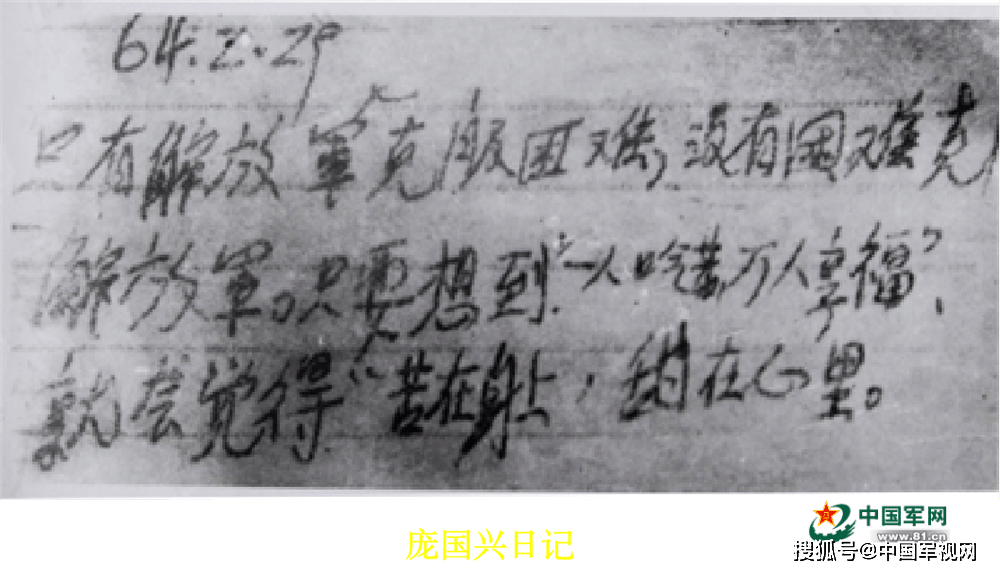 64.2.29
只有解放军克服困难，没有困难克
解放军。只要想到“一人吃苦，万人享福”，
就会觉得“苦在身上，甜在心里。
庞国兴日记
中国军网
www.81.cn
搜狐号@中国军视网